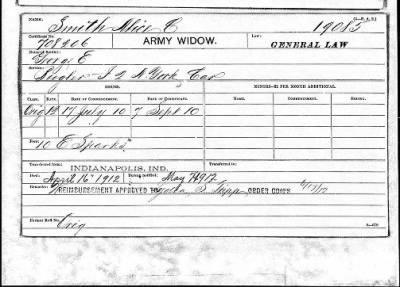 (3—848.)
NAME: Smith Alice C 19085
Certificate No. 708906 ARMY WIDOW. Law: GENERAL LAW
Name of Soldier: George E
Service: I 2 N York Cav
ISSUE. MINORS—$2 PER MONTH ADDITIONAL.
CLASS. RATE. DATE OF COMMENCEMENT. DATE OF CERTIFICATE. NAME. COMMENCEMENT. ENDING.
Orig 12 17 July 10 7 Sept 10
10 E Sparks
Transferred from: Transferred to:
INDIANAPOLIS, IND.
Died: April 16 1912 Bureau notified: May 1912
Remarks: REIMBURSEMENT APPROVED ORDER COMR
Former Roll No. Orig